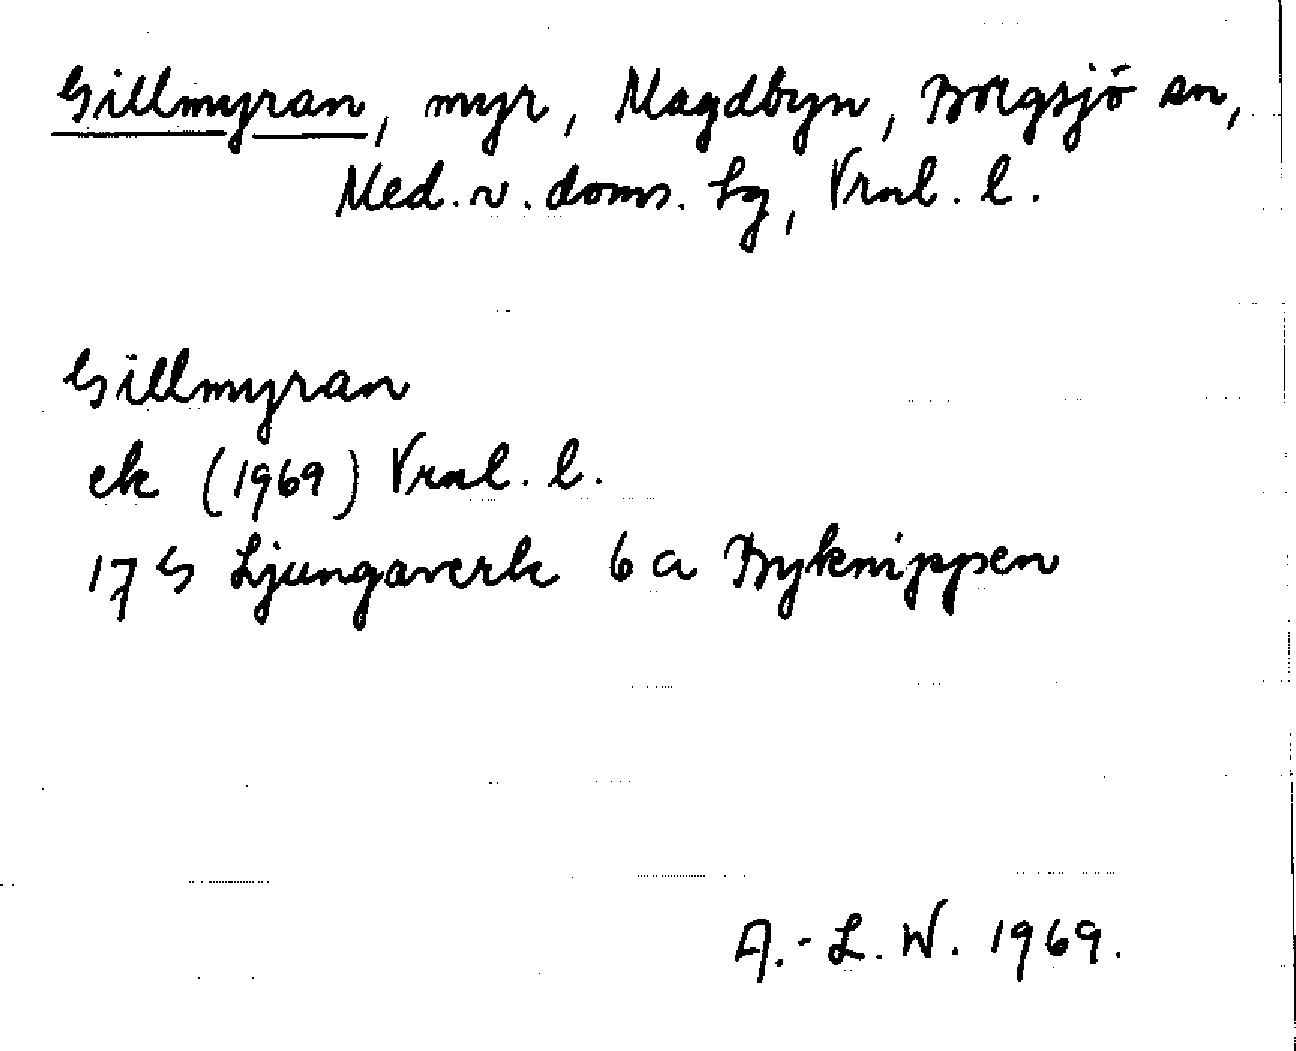 Gillmyran, myr, Magdbyn, Borgsjö sn,
Med. v. doms. hg, Vrnl. l.
Gillmyran
ek (1969) Vrnl. l.
17 G Ljungaverk 6 a Byknippen
A.-L. W. 1969.